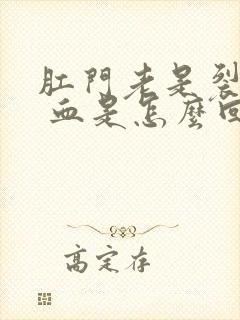 肛門老是裂
血是怎麼回
高定存